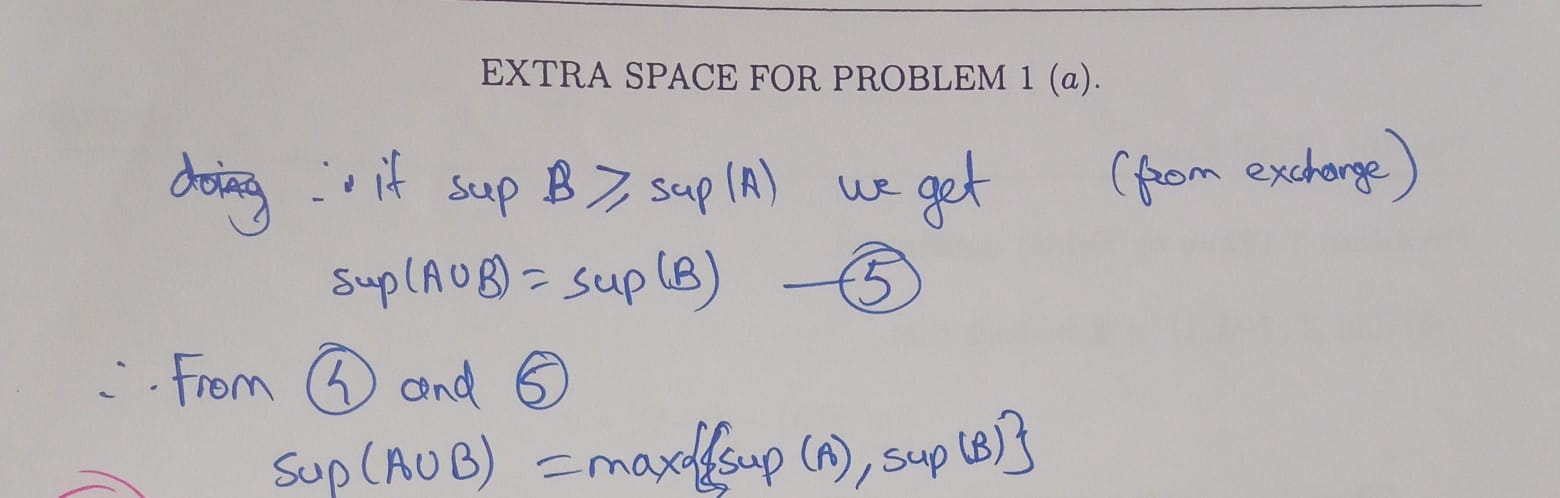 EXTRA SPACE FOR PROBLEM 1 (a).
doing ∴ if sup B ≥ sup(A) we get (from exchange)
sup(A∪B) = sup(B) —⑤
∴ From ④ and ⑤
sup(A∪B) = max{sup(A), sup(B)}